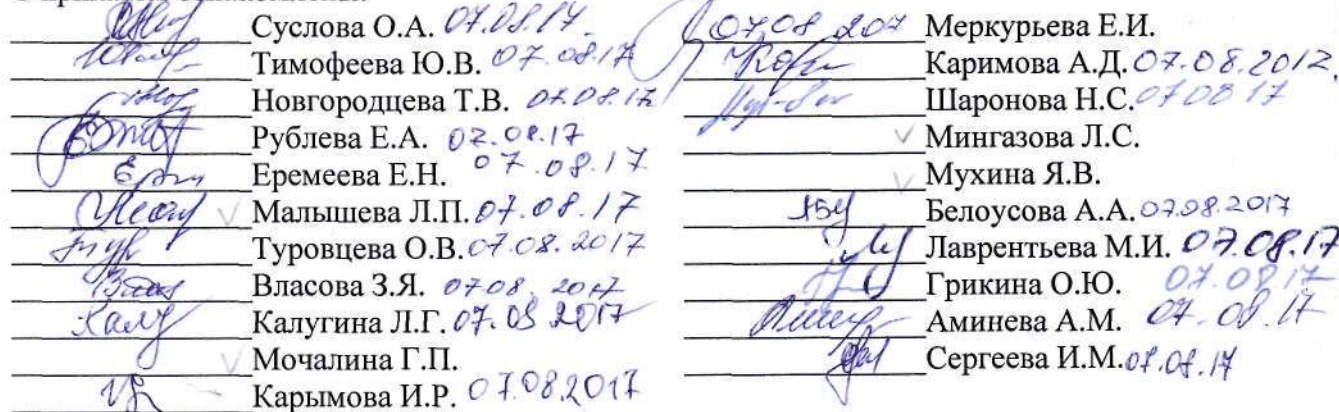 Суслова О.А. 07.08.17.
Тимофеева Ю.В. 07.08.17
Новгородцева Т.В. 07.08.17
Рублева Е.А. 07.08.17
Еремеева Е.Н. 07.08.17
Малышева Л.П. 07.08.17
Туровцева О.В. 07.08.2017
Власова З.Я. 0708. 2017
Калугина Л.Г. 07.08 2017
Мочалина Г.П.
Карымова И.Р. 07.08.2017
07.08 207 Меркурьева Е.И.
Каримова А.Д. 07.08.2017.
Шаронова Н.С. 070817
Мингазова Л.С.
Мухина Я.В.
Белоусова А.А. 07.08.2017
Лаврентьева М.И. 07.08.17
Грикина О.Ю. 07.08.17
Аминева А.М. 07.08.17
Сергеева И.М. 07.08.17